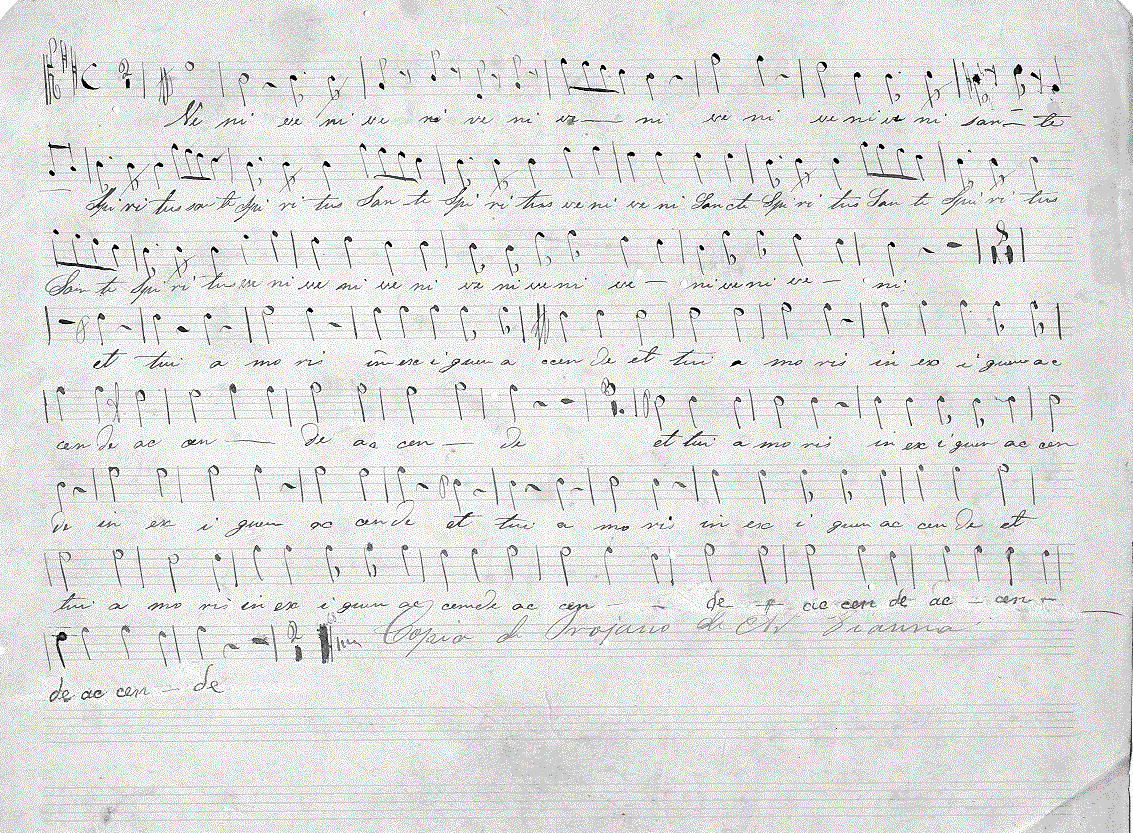 Ve ni ve ni ve ni ve ni ve ni ve ni ve ni ve ni san te
Spi ri tus san te Spi ri tus San te Spi ri tus ve ni ve ni Sancte Spi ri tus San te Spi ri tus
San te Spi ri tus ve ni ve ni ve ni ve ni ve ni ve ni ve ni ve ni
et tui a mo ris in ex i guum a ccen de et tui a mo ris in ex i guum ac
cen de ac cen de ac cen de et tui a mo ris in ex i guum ac cen
de in ex i guum ac cen de et tui a mo ris in ex i guum ac cen de et
tui a mo ris in ex i guum ac cen de ac cen de ac cen de ac cen
Copia di di
de ac cen de